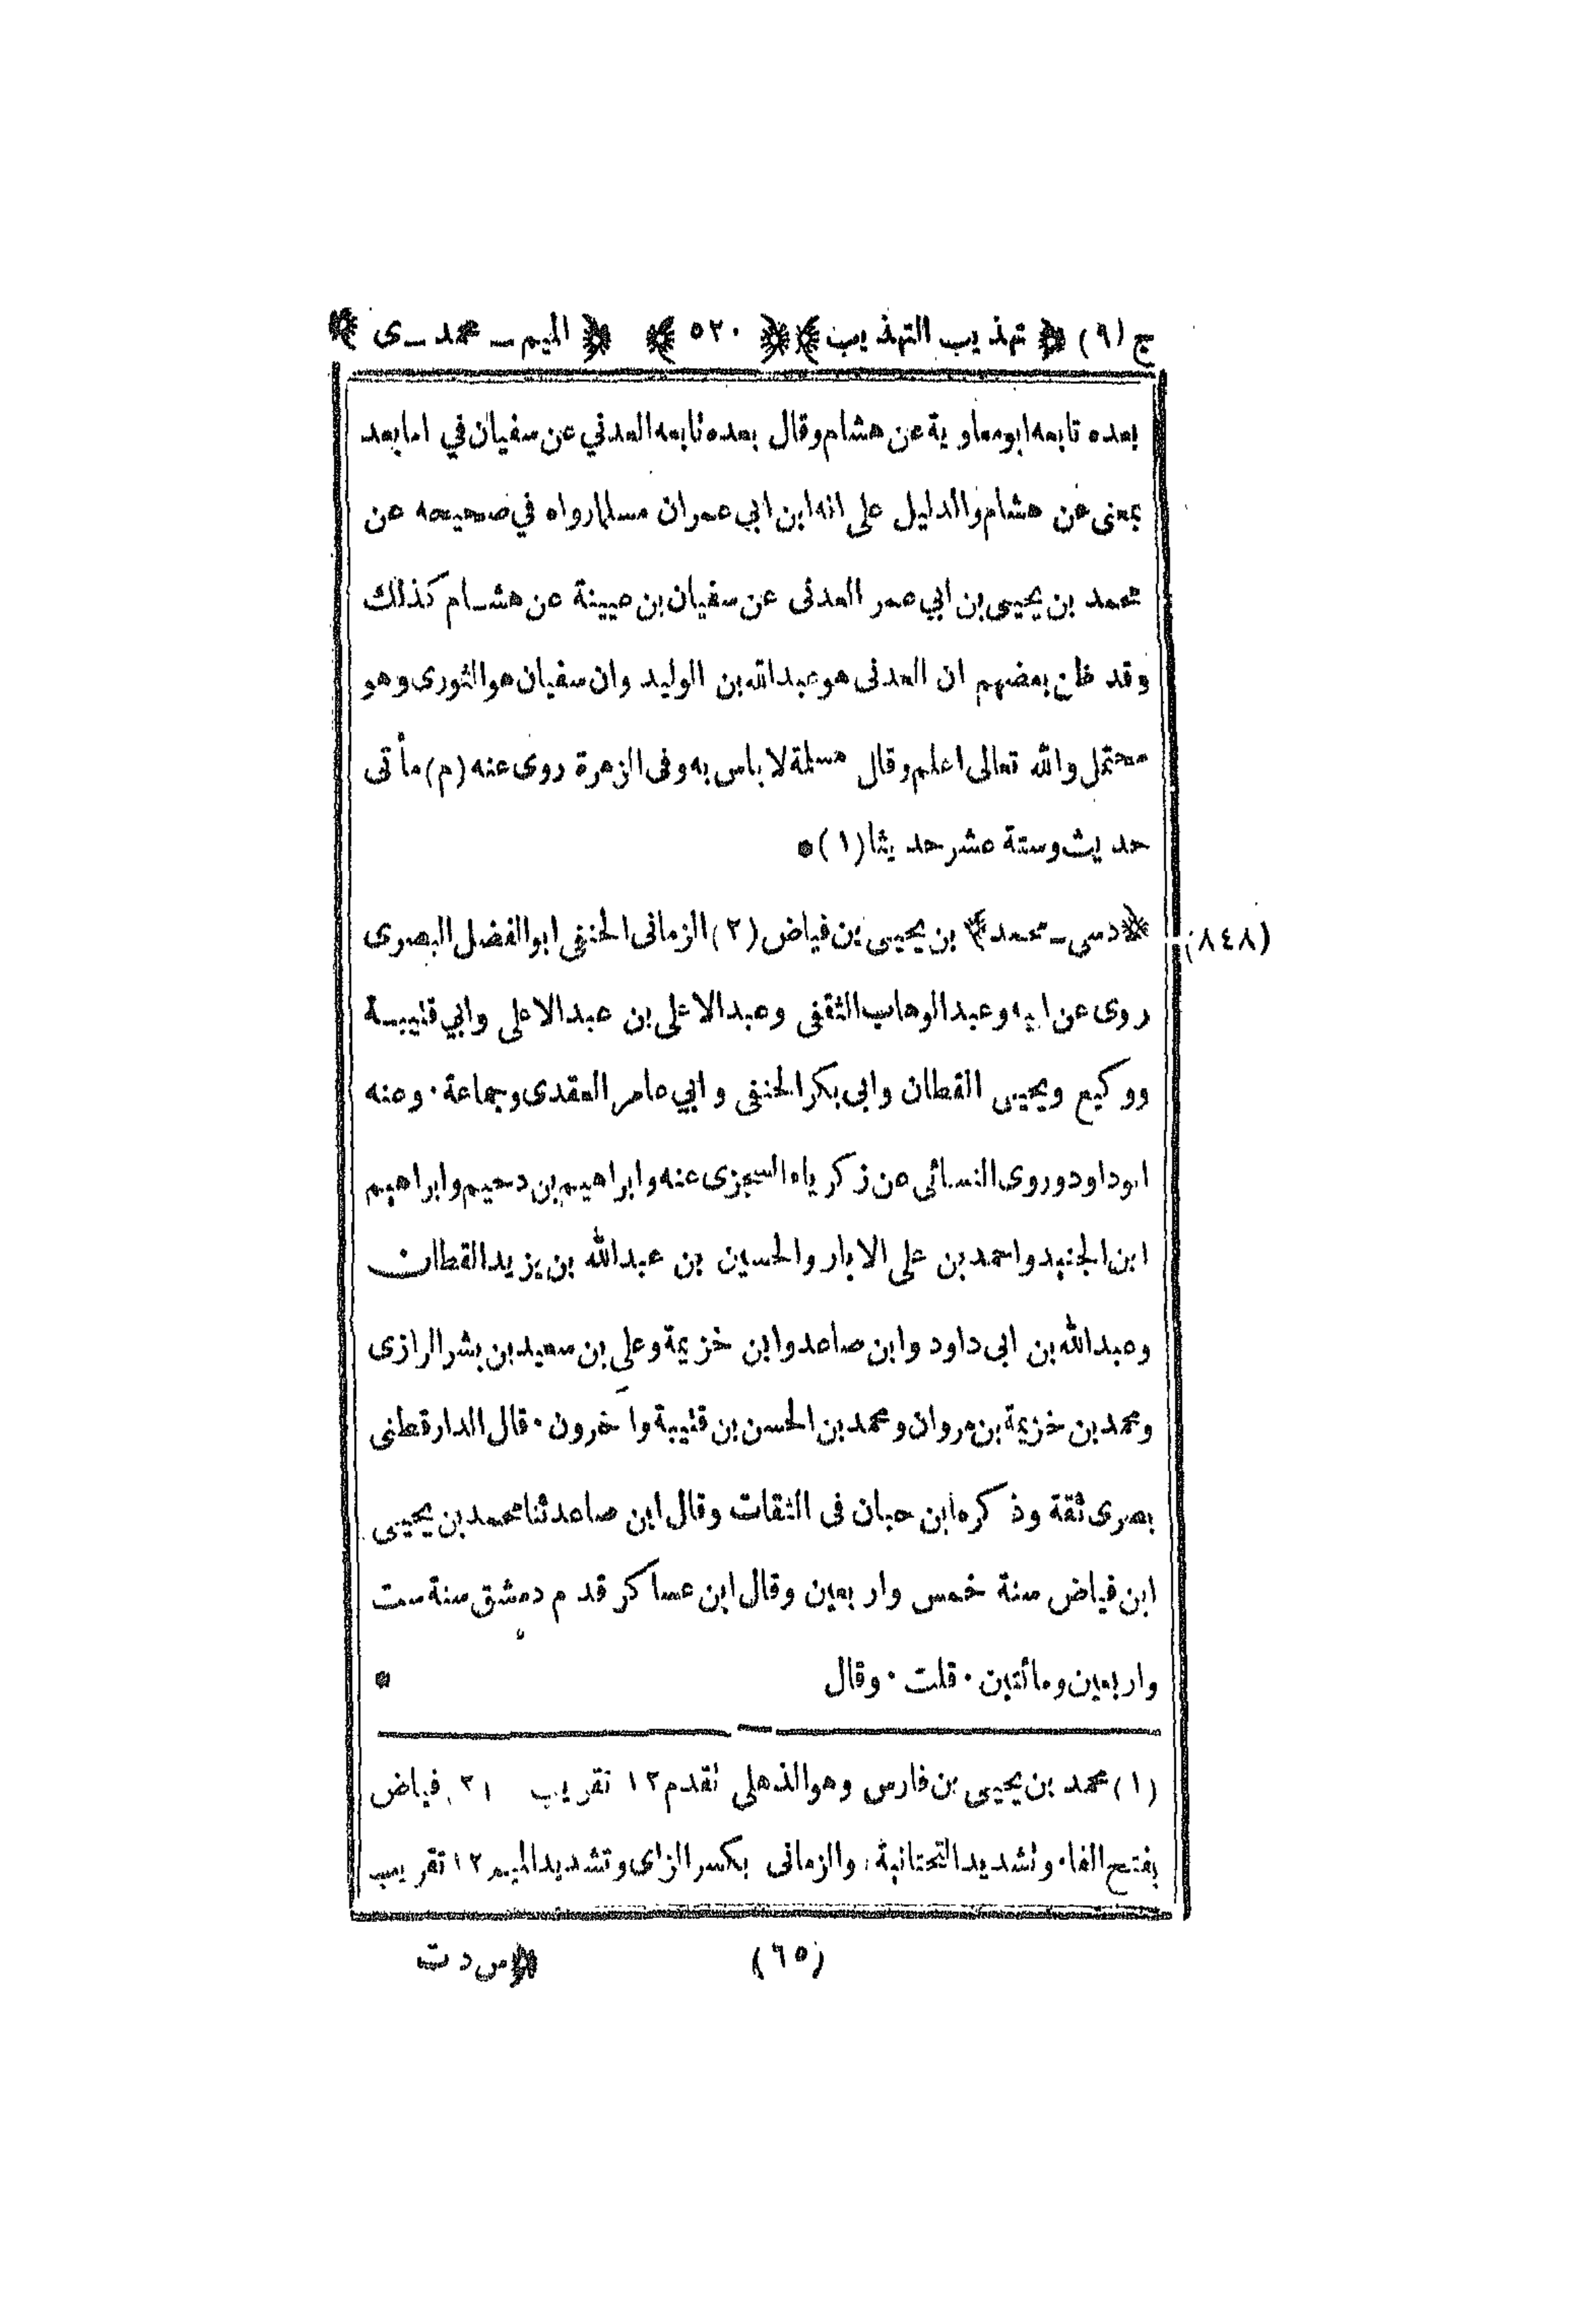 ج (٩) ﴿ تهذيب التهذيب ﴾ ﴿ ٥٢٠ ﴾ ﴿ الميم ـ محمد ـ ى ﴾
بعده تابعه ابو معاوية عن هشام وقال بعده تابعه العدني عن سفيان في اما بعد
يعنى عن هشام والدليل على انه ابن ابي عمران مسلما رواه في صحيحه عن
محمد بن يحيى بن ابي عمر العدنى عن سفيان بن عيينة عن هشام كذلك
وقد ظن بعضهم ان العدنى هو عبدالله بن الوليد وان سفيان هو الثورى وهو
محتمل والله تعالى اعلم وقال مسلمة لا باس به وفى الزهرة روى عنه (م) مأتى
حديث وستة عشر حديثا (١) *
(٨٤٨) ﴿ دسى ـ محمد ﴾ بن يحيى بن فياض (٢) الزمانى الحنفى ابو الفضل البصرى
روى عن ابيه وعبد الوهاب الثقفى وعبد الاعلى بن عبد الاعلى وابي قتيبة
ووكيع ويحيى القطان وابى بكر الحنفى وابي عامر العقدى وجماعة ٠ وعنه
ابو داود وروى النسائى عن زكرياء السجزى عنه وابراهيم بن دحيم وابراهيم
ابن الجنيد واحمد بن على الابار والحسين بن عبدالله بن يزيد القطان
وعبدالله بن ابى داود وابن صاعد وابن خزيمة وعلى بن سعيد بن بشر الرازى
ومحمد بن خزيمة بن مروان ومحمد بن الحسن بن قتيبة وآخرون ٠ قال الدارقطنى
بصرى ثقة وذكره ابن حبان فى الثقات وقال ابن صاعد ثنا محمد بن يحيى
ابن فياض سنة خمس واربعين وقال ابن عساكر قدم دمشق سنة ست
واربعين ومائتين ٠ قلت ٠ وقال *
(١) محمد بن يحيى بن فارس وهو الذهلى تقدم ١٢ تقريب (٢) فياض
بفتح الفاء وتشديد التحتانية، والزمانى بكسر الزاى وتشديد الميم ١٢ تقريب
(٦٥) ﴿ س د ت